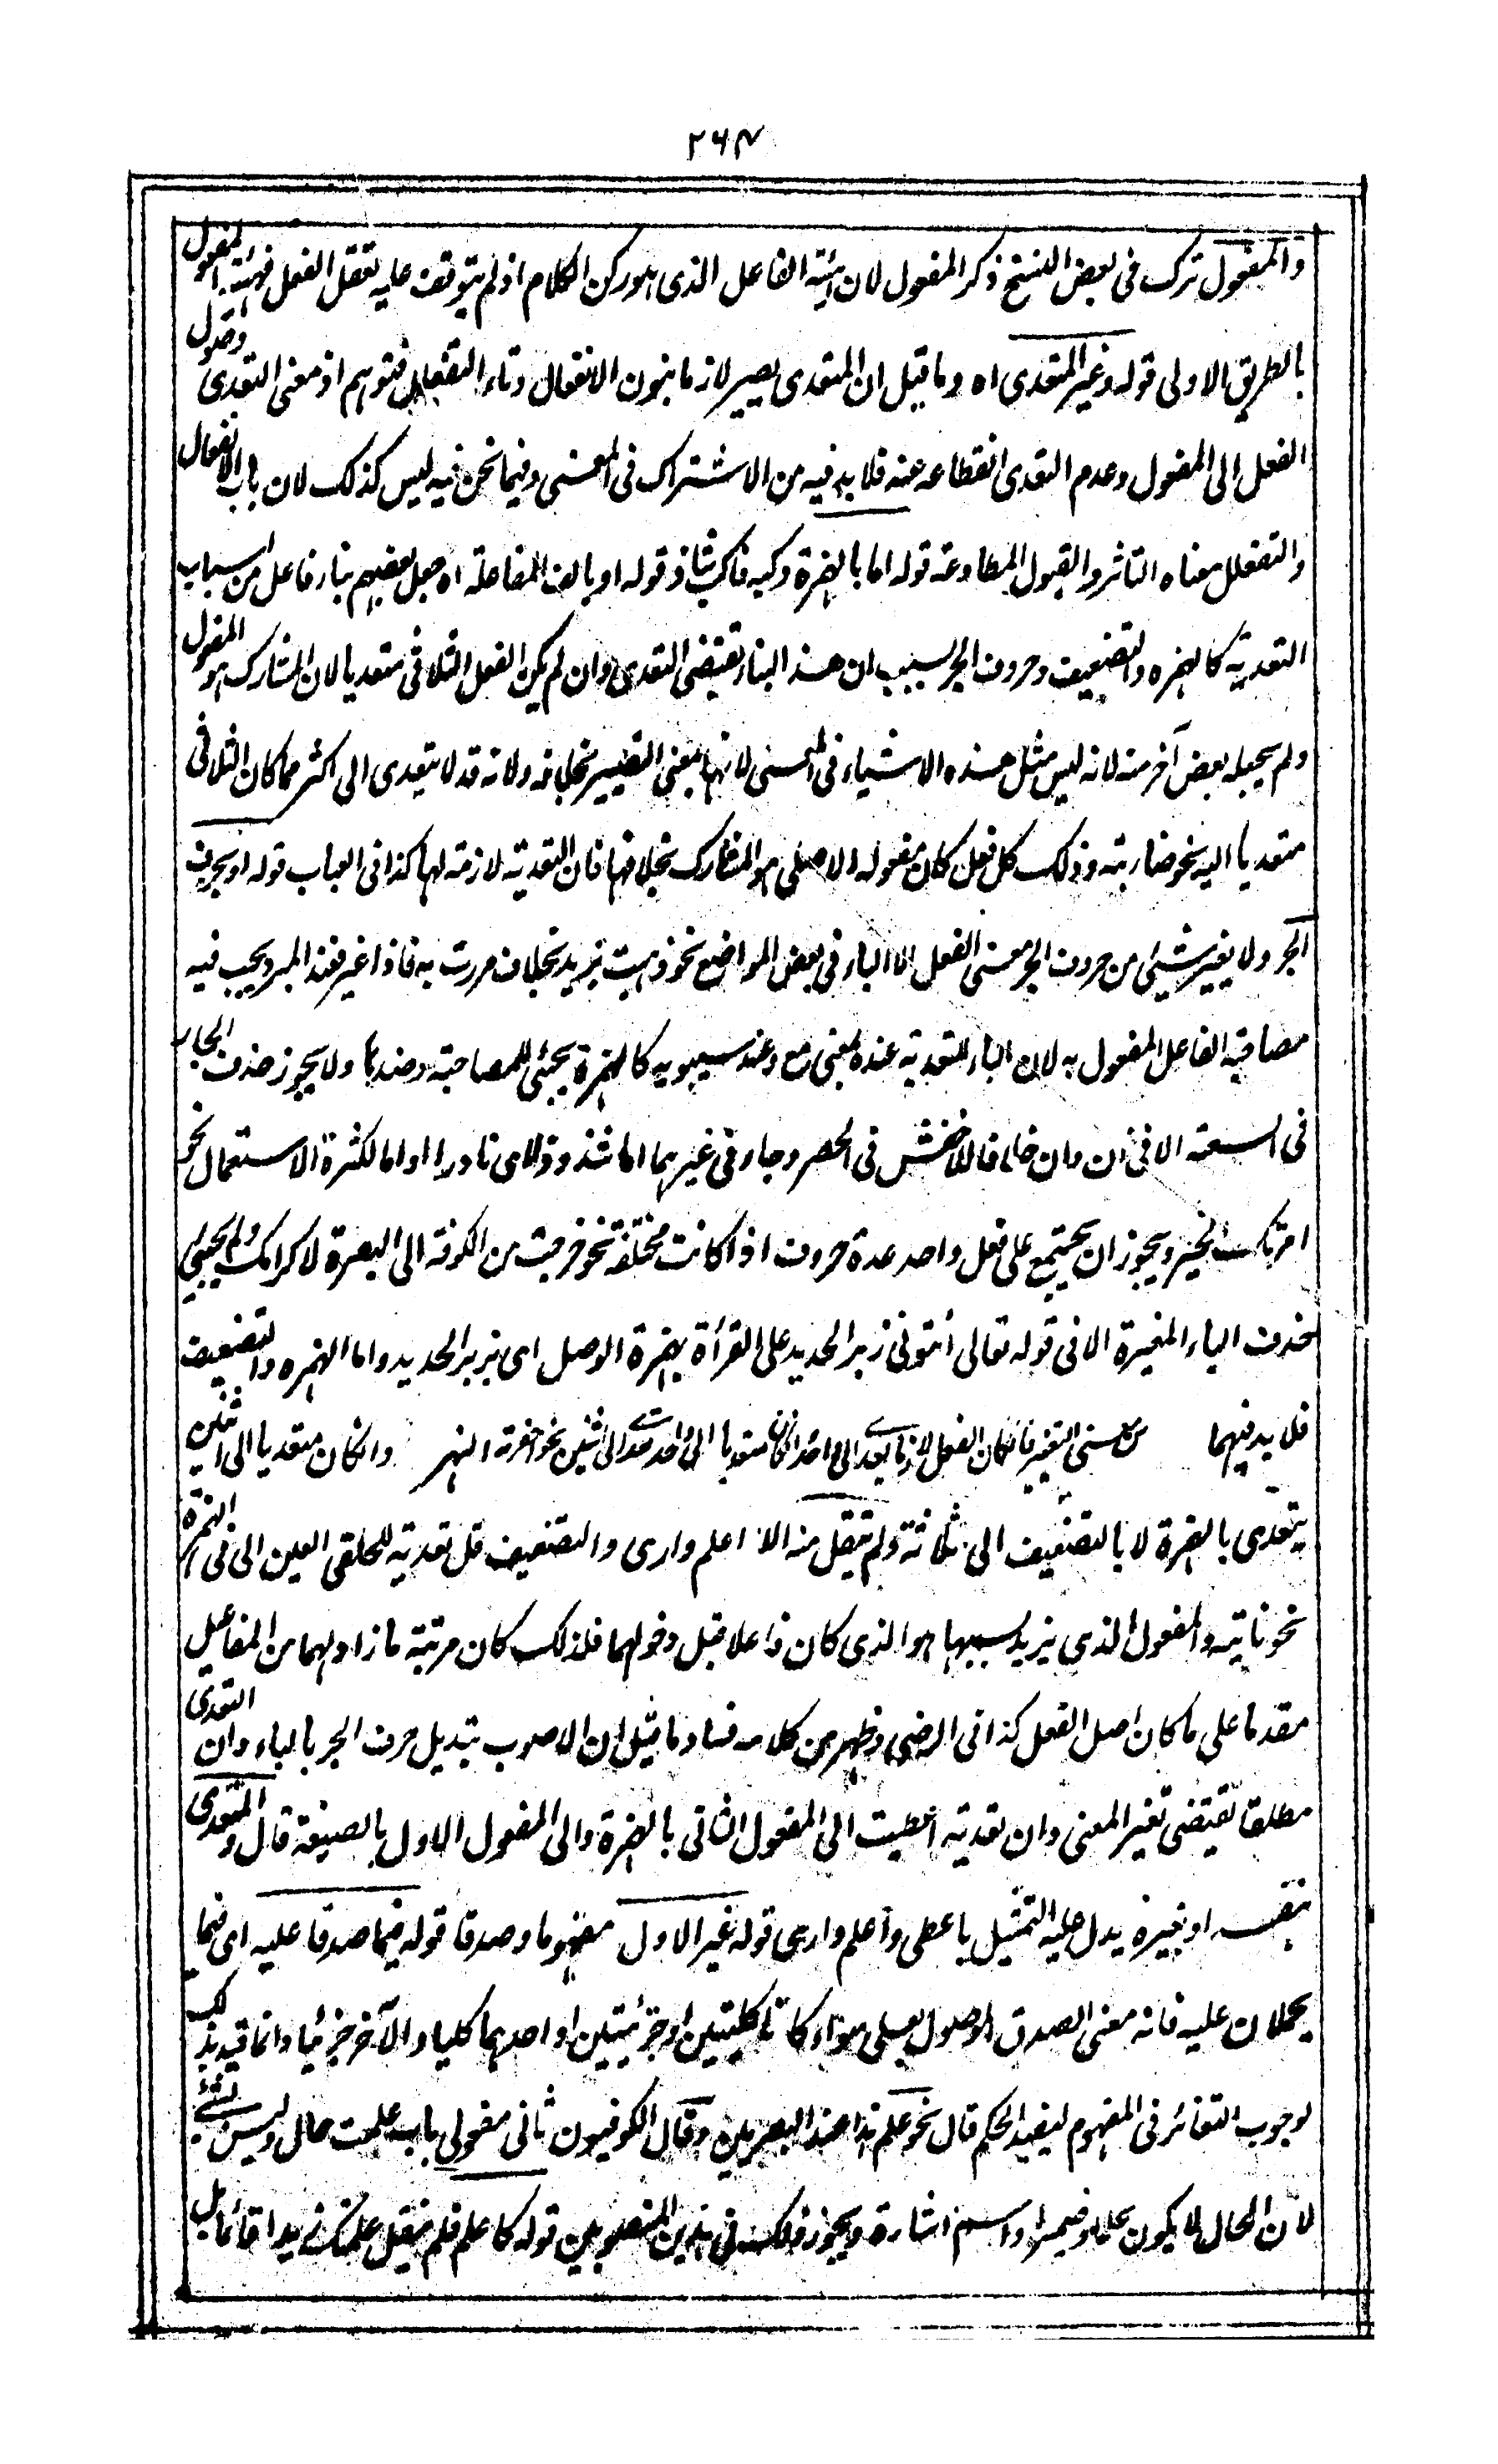 ٢٦٣
والمفعول ترك فى بعض النسخ ذكر المفعول لان هيئة الفاعل الذى هو ركن الكلام اذ لم يتوقف عليه تعقل الفعل فهيئة المفعول
بالطريق الاولى قوله وغير المتعدى اه وما قيل ان المتعدى يصير لازما بنون الانفعال وتاء التفعلل فتوهم اذ معنى التعدى وصول
الفعل الى المفعول وعدم التعدى انقطاعه عنه فلا بد فيه من الاشتراك فى المعنى وفيما نحن فيه ليس كذلك لان باب الانفعال
والتفعلل معناه التاثر والقبول المطاوعة قوله اما بالهمزة وكبه فاكب شاذ قوله او بالف المفاعلة اه جعل بعضهم بناء فاعل من اسباب
التعدية كالهمزه والتضعيف وحروف الجر لسبب ان هذا البناء يقتضى التعدى وان لم يكن الفعل الثلاثى متعديا لان المشارك هو المفعول
ولم يجعله بعض آخر منه لانه ليس مثل هذه الاشياء فى المعنى لانها بمعنى التصيير بخلافه ولانه قد لا يتعدى الى اكثر مما كان الثلاثى
متعديا اليه نحو ضاربته وذلك كل فعل كان مفعوله الاصلى هو المشارك بخلافها فان التعدية لازمة لها كذا فى العباب قوله او بحرف
الجر ولا يغير شيئ من حروف الجر معنى الفعل الا الباء فى بعض المواضع نحو ذهبت بزيد بخلاف مررت به فاذا غير فعند المبرد يجب فيه
مصاحبة الفاعل المفعول به لان الباء للتعدية عنده بمعنى مع وعند سيبويه كالهمزة يجئ للمصاحبة وضدها ولا يجوز حذف الجار
فى السعة الا فى ان وان خلافا للاخفش فى الحصر وجاء فى غيرهما اما شذوذا اى نادرا او اما لكثرة الاستعمال نحو
امرتك الخير ويجوز ان يجتمع على فعل واحد عدة حروف اذا كانت مختلفة نحو خرجت من الكوفة الى البصرة لاكرامك ولم يجئ
بحذف الباء المغيرة الا فى قوله تعالى أتونى زبر الحديد على القرأة بهمزة الوصل اى بزبر الحديد واما الهمزه والتضعيف
فلا بد فيهما من معنى التغير فان كان الفعل لازما يعدى الى واحد وان كان متعديا الى واحد تعدى الى اثنين نحو احفرته النهر وان كان متعديا الى اثنين
يتعدى بالهمزة لا بالتضعيف الى ثلاثة ولم ينقل منه الا اعلم وارى والتضعيف قل تعديه للحلقى العين الا فى الهمزة
نحو نايته والمفعول الذى يزيد بسببها هو الذى كان فاعلا قبل دخولهما فلذلك كان مرتبة ما زاد لهما من المفاعيل
مقدما على ما كان اصل الفعل كذا فى الرضى وظهر من كلامه فساد ما قيل ان الاصوب تبديل حرف الجر بالباء وان التعدى
مطلقا يقتضى تغير المعنى وان تعدية اعطيت الى المفعول الثانى بالهمزة والى المفعول الاول بالصيغة قال والمتعدى
بنفسه او بغيره يدل عليه التمثيل باعطى وأعلم وارى قوله غير الاول مفهوما وصدقا قوله فيما صدقا عليه اى فيما
يحملان عليه فانه معنى الصدق الموصول بعلى سواء كانا كليتين او جزئيتين او احدهما كليا والآخر جزئيا وانما قيد بذلك
لوجوب التغائر فى المفهوم ليفيد الحكم قال نحو علم هذا عند البصريين وقال الكوفيون ثانى مفعولى باب علمت حال وليس بشئ
لان الحال لا يكون علما وضميرا واسم اشارة ويجوز ذلك فى هذين المنصوبين قوله كاعلم فلم ينقل علمتك زيدا قائما بل